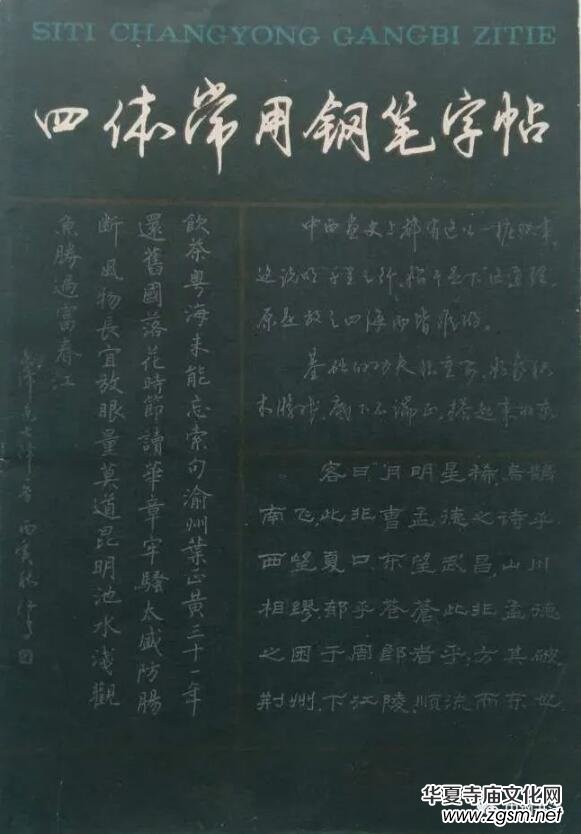 SITI CHANGYONG GANGBI ZITIE
四体常用钢笔字帖
飲茶粤海未能忘索句渝州葉正黃三十一年
還舊國落花時節讀華章牢騷太盛防腸
断風物長宜放眼量莫道昆明池水淺觀
魚勝過富春江
中西画史上都有这么一桩故事,
这说明"千里之行,始于足下"这道理,
原是放之四海而皆准的。
基础的功夫很重要,好象积
木游戏,底下不端正,搭起来的东
客曰"月明星稀,烏鵲
南飞,此非曹孟德之诗乎
西望夏口,东望武昌,山川
相繆,郁乎苍蒼此非孟德
之困于周郎者乎,方其破
荆州,下江陵,顺流而东也
华夏寺庙文化网
www.zgsm.net